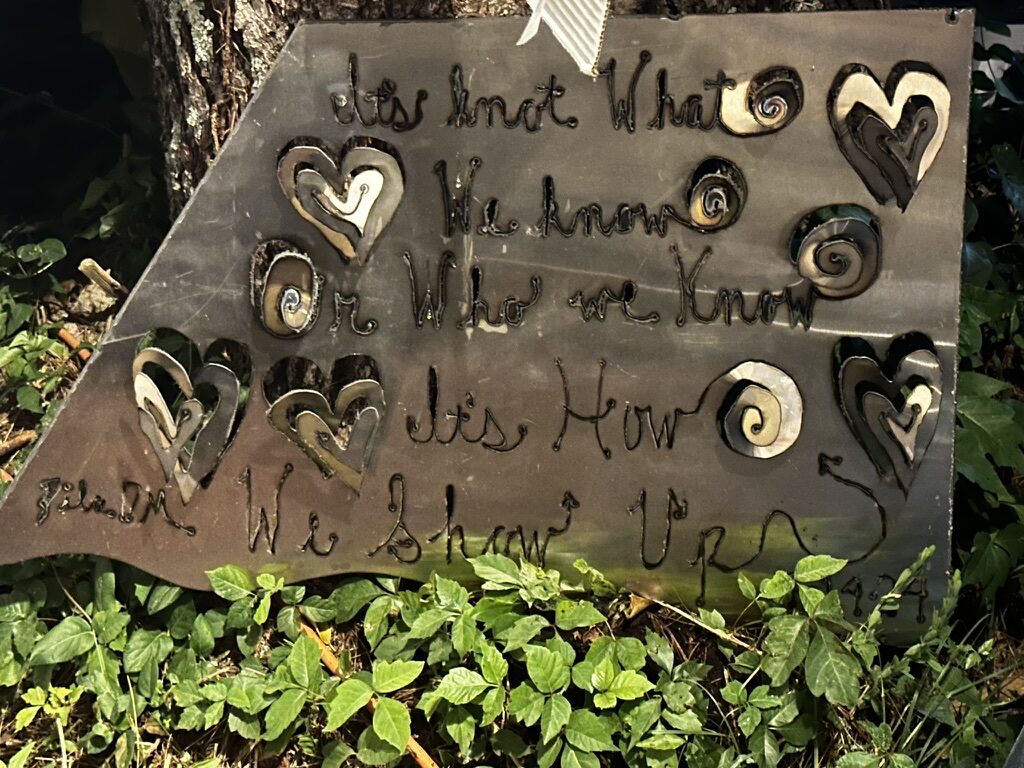 It's knot What
We know
Or Who we Know
It's How
We Show Up